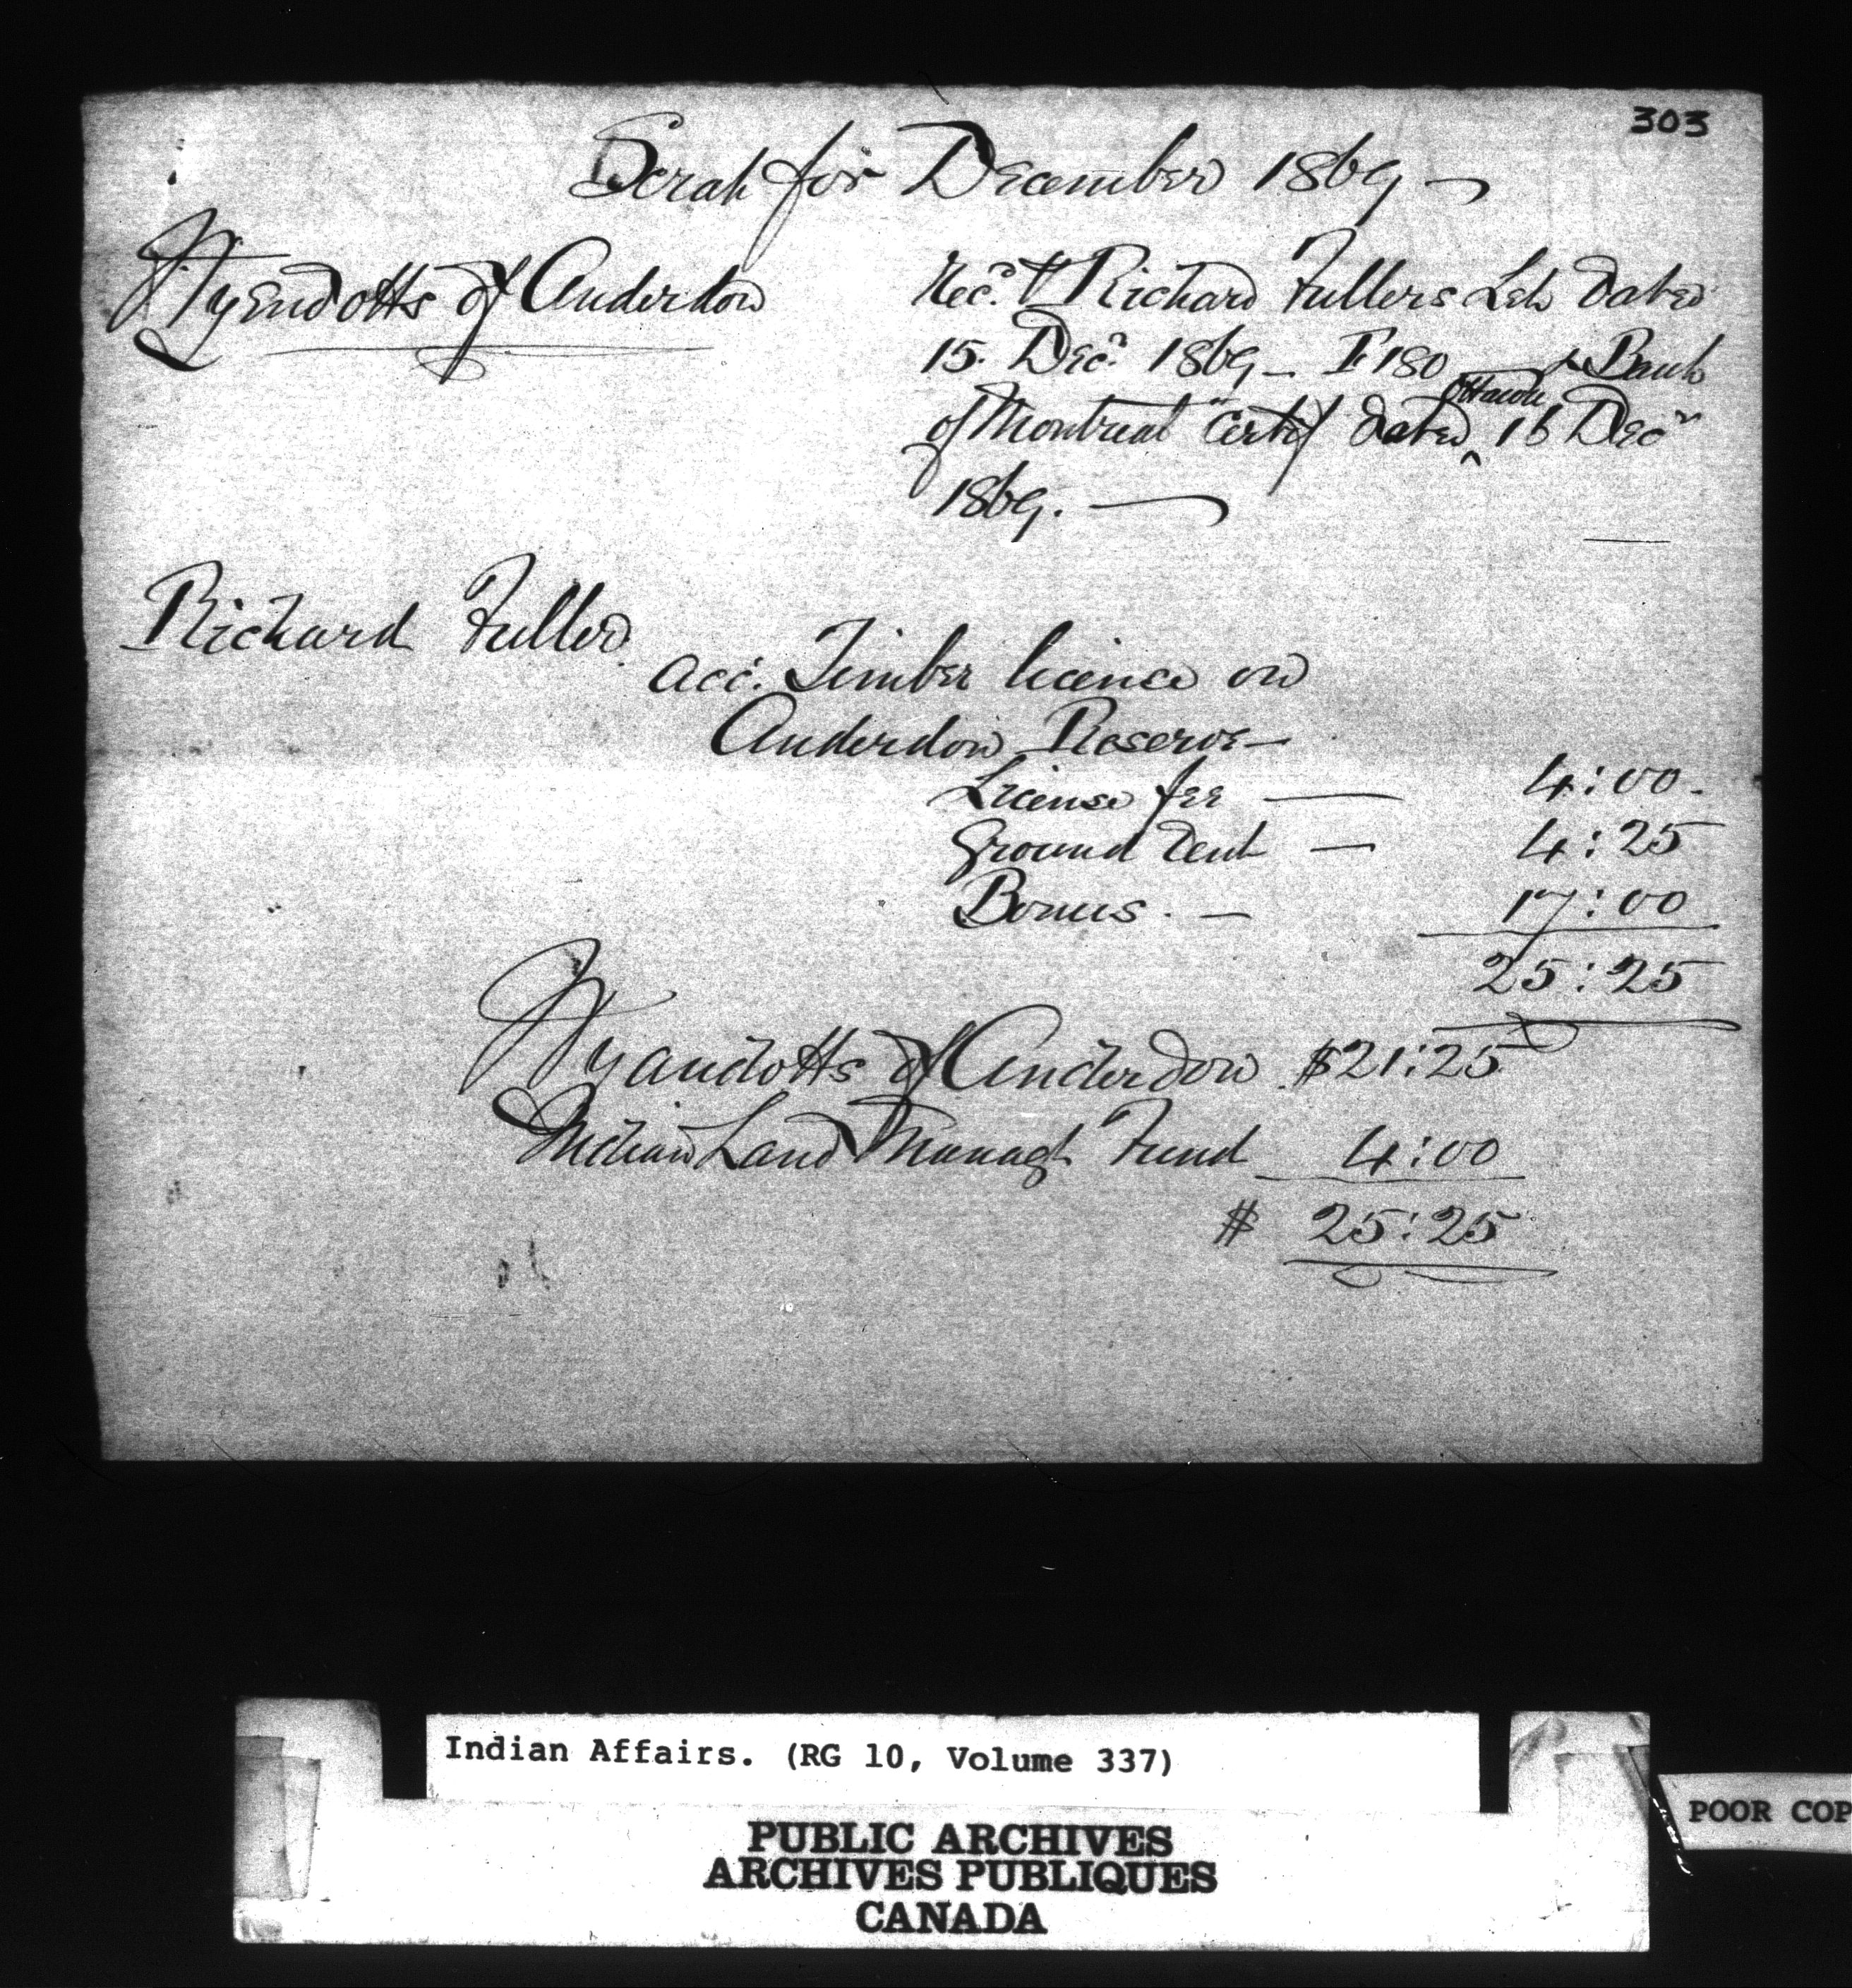 303
Scrah for December 1869 —
Wyendotts of Anderdon
Rec.d Richard Fullers Leh dated
15. Decr. 1869 — F 180 & Bank
of Montreal Certif dated Ottawa 16 Decr
1869. —
Richard Fuller
acc. Timber licence on
Anderdon Reserve —
License fee — 4:00.
Ground Rent — 4:25
Bonus. — 17:00
25:25
Wyandotts of Anderdon $21:25
Indian Land Managt Fund 4:00
$ 25:25
Indian Affairs. (RG 10, Volume 337)
PUBLIC ARCHIVES
ARCHIVES PUBLIQUES
CANADA
POOR COP